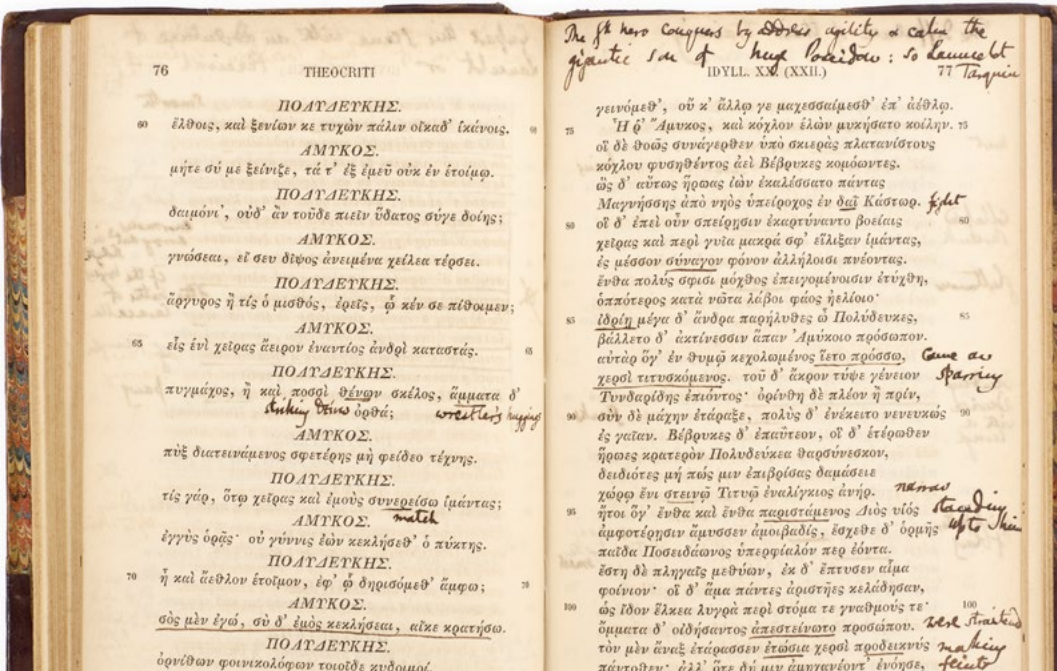 76 THEOCRITI
ΠΟΛΥΔΕΥΚΗΣ.
60 ἔλθοις, καὶ ξενίων κε τυχὼν πάλιν οἴκαδ' ἱκάνοις. 60
ΑΜΥΚΟΣ.
μήτε σύ με ξείνιζε, τά τ' ἐξ ἐμεῦ οὐκ ἐν ἑτοίμῳ.
ΠΟΛΥΔΕΥΚΗΣ.
δαιμόνι', οὐδ' ἂν τοῦδε πιεῖν ὕδατος σύγε δοίης;
ΑΜΥΚΟΣ.
γνώσεαι, εἴ σευ δίψος ἀνειμένα χείλεα τέρσει.
ΠΟΛΥΔΕΥΚΗΣ.
ἄργυρος ἢ τίς ὁ μισθός, ἐρεῖς, ᾧ κέν σε πίθοιμεν;
ΑΜΥΚΟΣ.
65 εἷς ἑνὶ χεῖρας ἄειρον ἐναντίος ἀνδρὶ καταστάς. 65
ΠΟΛΥΔΕΥΚΗΣ.
πυγμάχος, ἢ καὶ ποσσὶ θένων σκέλος, ἅμματα δ'
striking ὀρθά; wrestler's
ΑΜΥΚΟΣ.
πὺξ διατεινάμενος σφετέρης μὴ φείδεο τέχνης.
ΠΟΛΥΔΕΥΚΗΣ.
τίς γάρ, ὅτῳ χεῖρας καὶ ἐμοὺς συνερείσω ἱμάντας;
ΑΜΥΚΟΣ. match
ἐγγὺς ὁρᾷς· οὐ γύννις ἐὼν κεκλήσεθ' ὁ πύκτης.
ΠΟΛΥΔΕΥΚΗΣ.
70 ἦ καὶ ἄεθλον ἑτοῖμον, ἐφ' ᾧ δηρισόμεθ' ἄμφω; 70
ΑΜΥΚΟΣ.
σὸς μὲν ἐγώ, σὺ δ' ἐμὸς κεκλήσεαι, αἴκε κρατήσω.
ΠΟΛΥΔΕΥΚΗΣ.
ὀρνίθων φοινικολόφων τοιοίδε κυδοιμοί.
The Gk hero conquers by address agility & calm the
gigantic son of huge Poseidon: so Launcelot
Tarquin
IDYLL. XX. (XXII.) 77
γεινόμεθ', οὔ κ' ἄλλῳ γε μαχεσσαίμεσθ' ἐπ' ἀέθλῳ.
75 Ἦ ῥ' Ἄμυκος, καὶ κόχλον ἑλὼν μυκήσατο κοίλην. 75
οἳ δὲ θοῶς συνάγερθεν ὑπὸ σκιερὰς πλατανίστους
κόχλου φυσηθέντος ἀεὶ Βέβρυκες κομόωντες.
ὣς δ' αὔτως ἥρωας ἰὼν ἐκαλέσσατο πάντας
Μαγνήσσης ἀπὸ νηὸς ὑπείροχος ἐν δαῒ Κάστωρ. fight
80 οἳ δ' ἐπεὶ οὖν σπείρῃσιν ἐκαρτύναντο βοείαις 80
χεῖρας καὶ περὶ γυῖα μακρά σφ' εἵλιξαν ἱμάντας,
ἐς μέσσον σύναγον φόνον ἀλλήλοισι πνέοντας.
ἔνθα πολύς σφισι μόχθος ἐπειγομένοισιν ἐτύχθη,
ὁππότερος κατὰ νῶτα λάβοι φάος ἠελίοιο·
85 ἰδρίῃ μέγα δ' ἄνδρα παρήλυθες ὦ Πολύδευκες, 85
βάλλετο δ' ἀκτίνεσσιν ἅπαν Ἀμύκοιο πρόσωπον.
αὐτὰρ ὅγ' ἐν θυμῷ κεχολωμένος ἵετο πρόσσω, Came on
χερσὶ τιτυσκόμενος. τοῦ δ' ἄκρον τύψε γένειον sparring
Τυνδαρίδης ἐπιόντος· ὀρίνθη δὲ πλέον ἢ πρίν,
90 σὺν δὲ μάχην ἐτάραξε, πολὺς δ' ἐνέκειτο νενευκὼς 90
ἐς γαῖαν. Βέβρυκες δ' ἐπαΰτεον, οἳ δ' ἑτέρωθεν
ἥρωες κρατερὸν Πολυδεύκεα θαρσύνεσκον,
δειδιότες μή πώς μιν ἐπιβρίσας δαμάσειε
χώρῳ ἔνι στεινῷ Τιτυῷ ἐναλίγκιος ἀνήρ. narrow
95 ἤτοι ὅγ' ἔνθα καὶ ἔνθα παριστάμενος Διὸς υἱὸς standing
ἀμφοτέρησιν ἄμυσσεν ἀμοιβαδίς, ἔσχεθε δ' ὁρμῆς up to him
παῖδα Ποσειδάωνος ὑπερφίαλόν περ ἐόντα.
ἔστη δὲ πληγαῖς μεθύων, ἐκ δ' ἔπτυσεν αἷμα
φοίνιον· οἳ δ' ἅμα πάντες ἀριστῆες κελάδησαν,
100 ὡς ἴδον ἕλκεα λυγρὰ περὶ στόμα τε γναθμούς τε· 100
ὄμματα δ' οἰδήσαντος ἀπεστείνωτο προσώπου. were straitened
τὸν μὲν ἄναξ ἐτάρασσεν ἐτώσια χερσὶ προδεικνὺς making
πάντοθεν· ἀλλ' ὅτε δή μιν ἀμηχανέοντ' ἐνόησε, feints